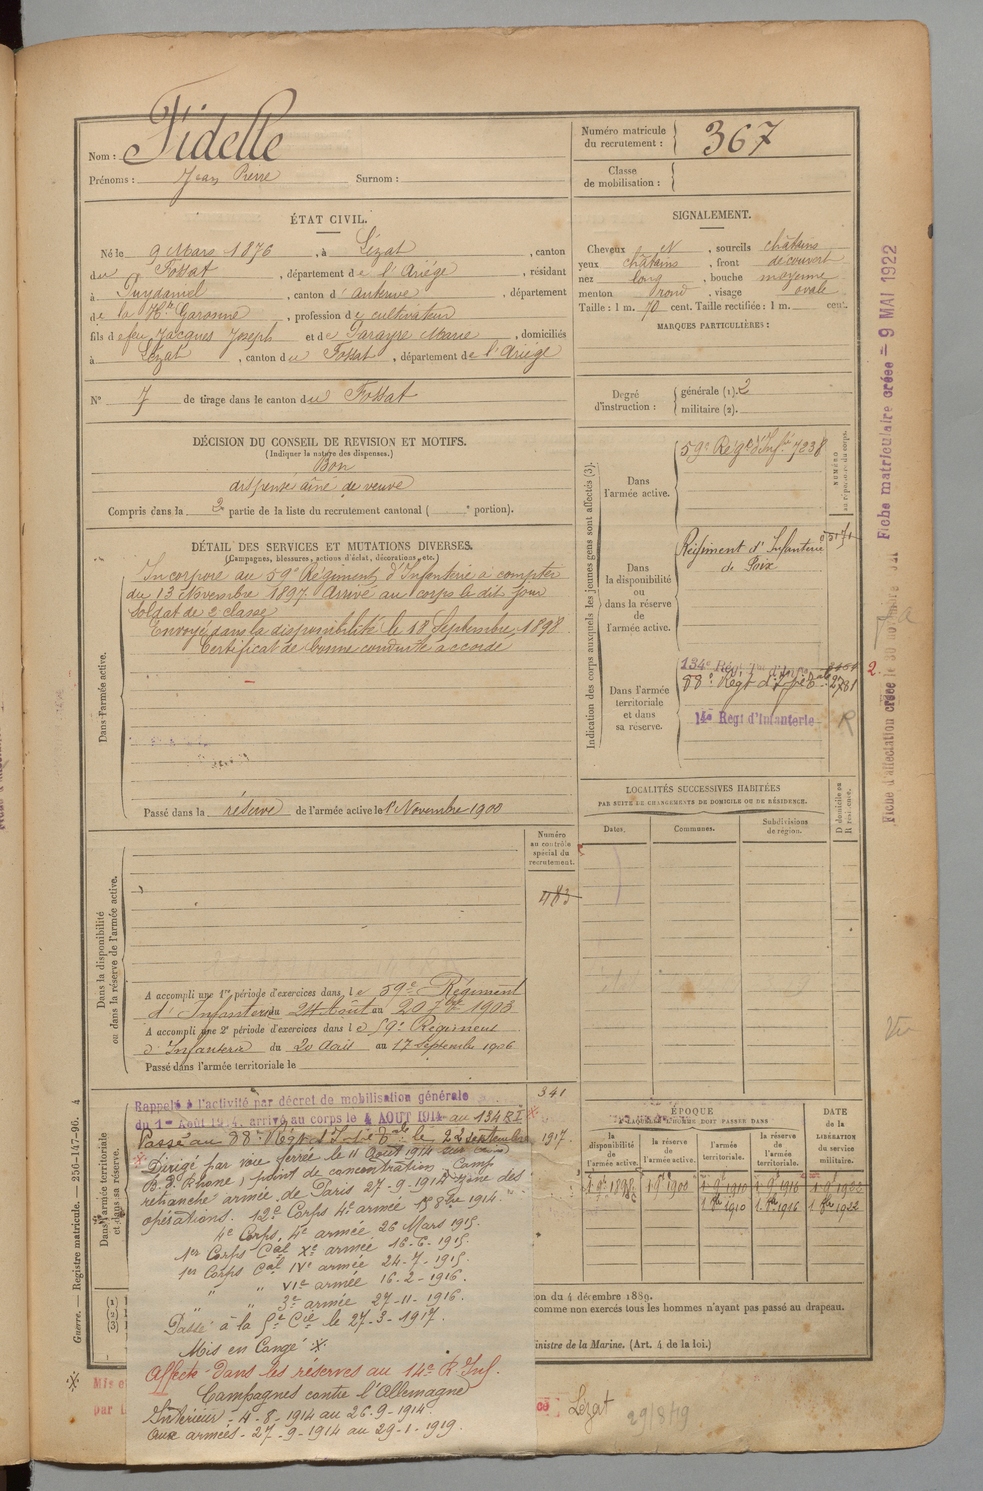 Nom : Fidelle
Prénoms : Jean Pierre Surnom :
Numéro matricule du recrutement : 367
Classe de mobilisation :
ÉTAT CIVIL.
Né le 9 Mars 1876, à Lézat, canton
du Fossat, département de l'Ariège, résidant
à Puydaniel, canton d'Auterive, département
de la Hte Garonne, profession de cultivateur
fils de feu Jacques Joseph et de Parayre Marie, domiciliés
à Lézat, canton du Fossat, département de l'Ariège
N° 7 de tirage dans le canton du Fossat
SIGNALEMENT.
Cheveux N, sourcils châtains
yeux châtains, front découvert
nez long, bouche moyenne
menton rond, visage ovale
Taille : 1 m. 70 cent. Taille rectifiée : 1 m. cent.
MARQUES PARTICULIÈRES :
Degré d'instruction : générale (1). 2
militaire (2).
DÉCISION DU CONSEIL DE REVISION ET MOTIFS.
(Indiquer la nature des dispenses.)
Bon
dispensé aîné de veuve
Compris dans la 2e partie de la liste du recrutement cantonal ( e portion).
DÉTAIL DES SERVICES ET MUTATIONS DIVERSES.
(Campagnes, blessures, actions d'éclat, décorations, etc.)
Dans l'armée active.
Incorporé au 59e Régiment d'Infanterie à compter
du 13 Novembre 1897. Arrivé au corps le dit jour
Soldat de 2e classe
Envoyé dans la disponibilité le 18 Septembre 1898.
Certificat de bonne conduite accordé
Passé dans la réserve de l'armée active le 1er Novembre 1900
Indication des corps auxquels les jeunes gens sont affectés (3).
NUMÉRO
au répertoire du corps.
Dans l'armée active.
59e Régt d'Infie 7238
Dans la disponibilité ou dans la réserve de l'armée active.
Régiment d'Infanterie
de Foix
Dans l'armée territoriale et dans sa réserve.
134e Régt Tal d'Infie
88e Régt d'Ife Tale 2781
14e Regt d'Infanterie
R
LOCALITÉS SUCCESSIVES HABITÉES
PAR SUITE DE CHANGEMENTS DE DOMICILE OU DE RÉSIDENCE.
Dates.
Communes.
Subdivisions de région.
D domicile ou R résidence.
Numéro au contrôle spécial du recrutement.
483
Dans la disponibilité ou dans la réserve de l'armée active.
A accompli une 1re période d'exercices dans le 59e Régiment
d'Infanterie du 24 Août au 20 7bre 1903
A accompli une 2e période d'exercices dans le 59e Régiment
d'Infanterie du 20 Août au 17 Septembre 1906
Passé dans l'armée territoriale le
341
Dans l'armée territoriale et dans sa réserve.
Rappelé à l'activité par décret de mobilisation générale
du 1er Août 1914, arrivé au corps le 4 AOUT 1914 au 134 RI
Passé au 88e Régt d'Ife Tale le 22 septembre 1917.
Dirigé par voie ferrée le 11 Août 1914 sur
B. d. Rhône, point de concentration. Camp
retranché armée de Paris 27-9-1914 zone des
opérations. 12e Corps 4e armée 15 8bre 1914.
4e Corps, 4e armée 26 Mars 1915.
1er Corps Cal Xe armée 16-6-1915.
1er Corps Cal IVe armée 24-7-1915.
" " VIe armée 16-2-1916.
" " 3e armée 27-11-1916.
Passé à la 5e Cie le 27-3-1917.
Mis en Congé
Affecté dans les réserves au 14e R. Inf.
Campagnes contre l'Allemagne
Intérieur - 4-8-1914 au 26-9-1914
Aux armées - 27-9-1914 au 29-1-1919.
ÉPOQUE
À LAQUELLE L'HOMME DOIT PASSER DANS
la disponibilité de l'armée active.
la réserve de l'armée active.
l'armée territoriale.
la réserve de l'armée territoriale.
DATE
de la LIBÉRATION du service militaire.
1 9bre 1898 1 9bre 1900 1 9bre 1910 1 9bre 1916
1 8bre 1910 1 8bre 1916 1 8bre 1922
on du 4 décembre 1889.
comme non exercés tous les hommes n'ayant pas passé au drapeau.
inistre de la Marine. (Art. 4 de la loi.)
(1)
(2)
(3)
Mis e
par l
Lézat
29/8/19
Guerre. — Registre matricule. — 256-147-96. 4
Fiche matriculaire créée = 9 MAI 1922
Fiche d'affectation créée le 30 novembre